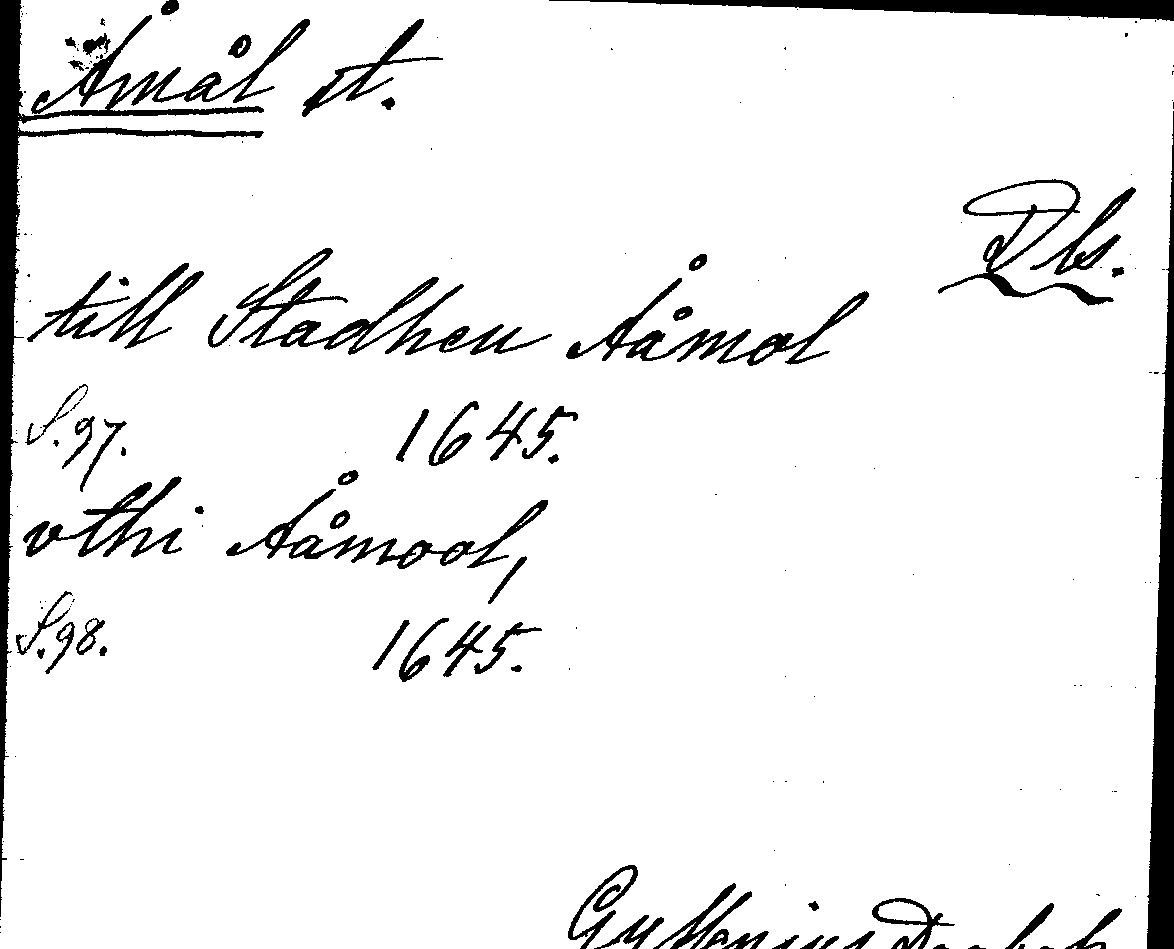 Åmål st.
Dls.
till Stadhen Ååmol
S. 97. 1645.
vthi Ååmool,
S. 98. 1645.
Gyllenius Dagbok